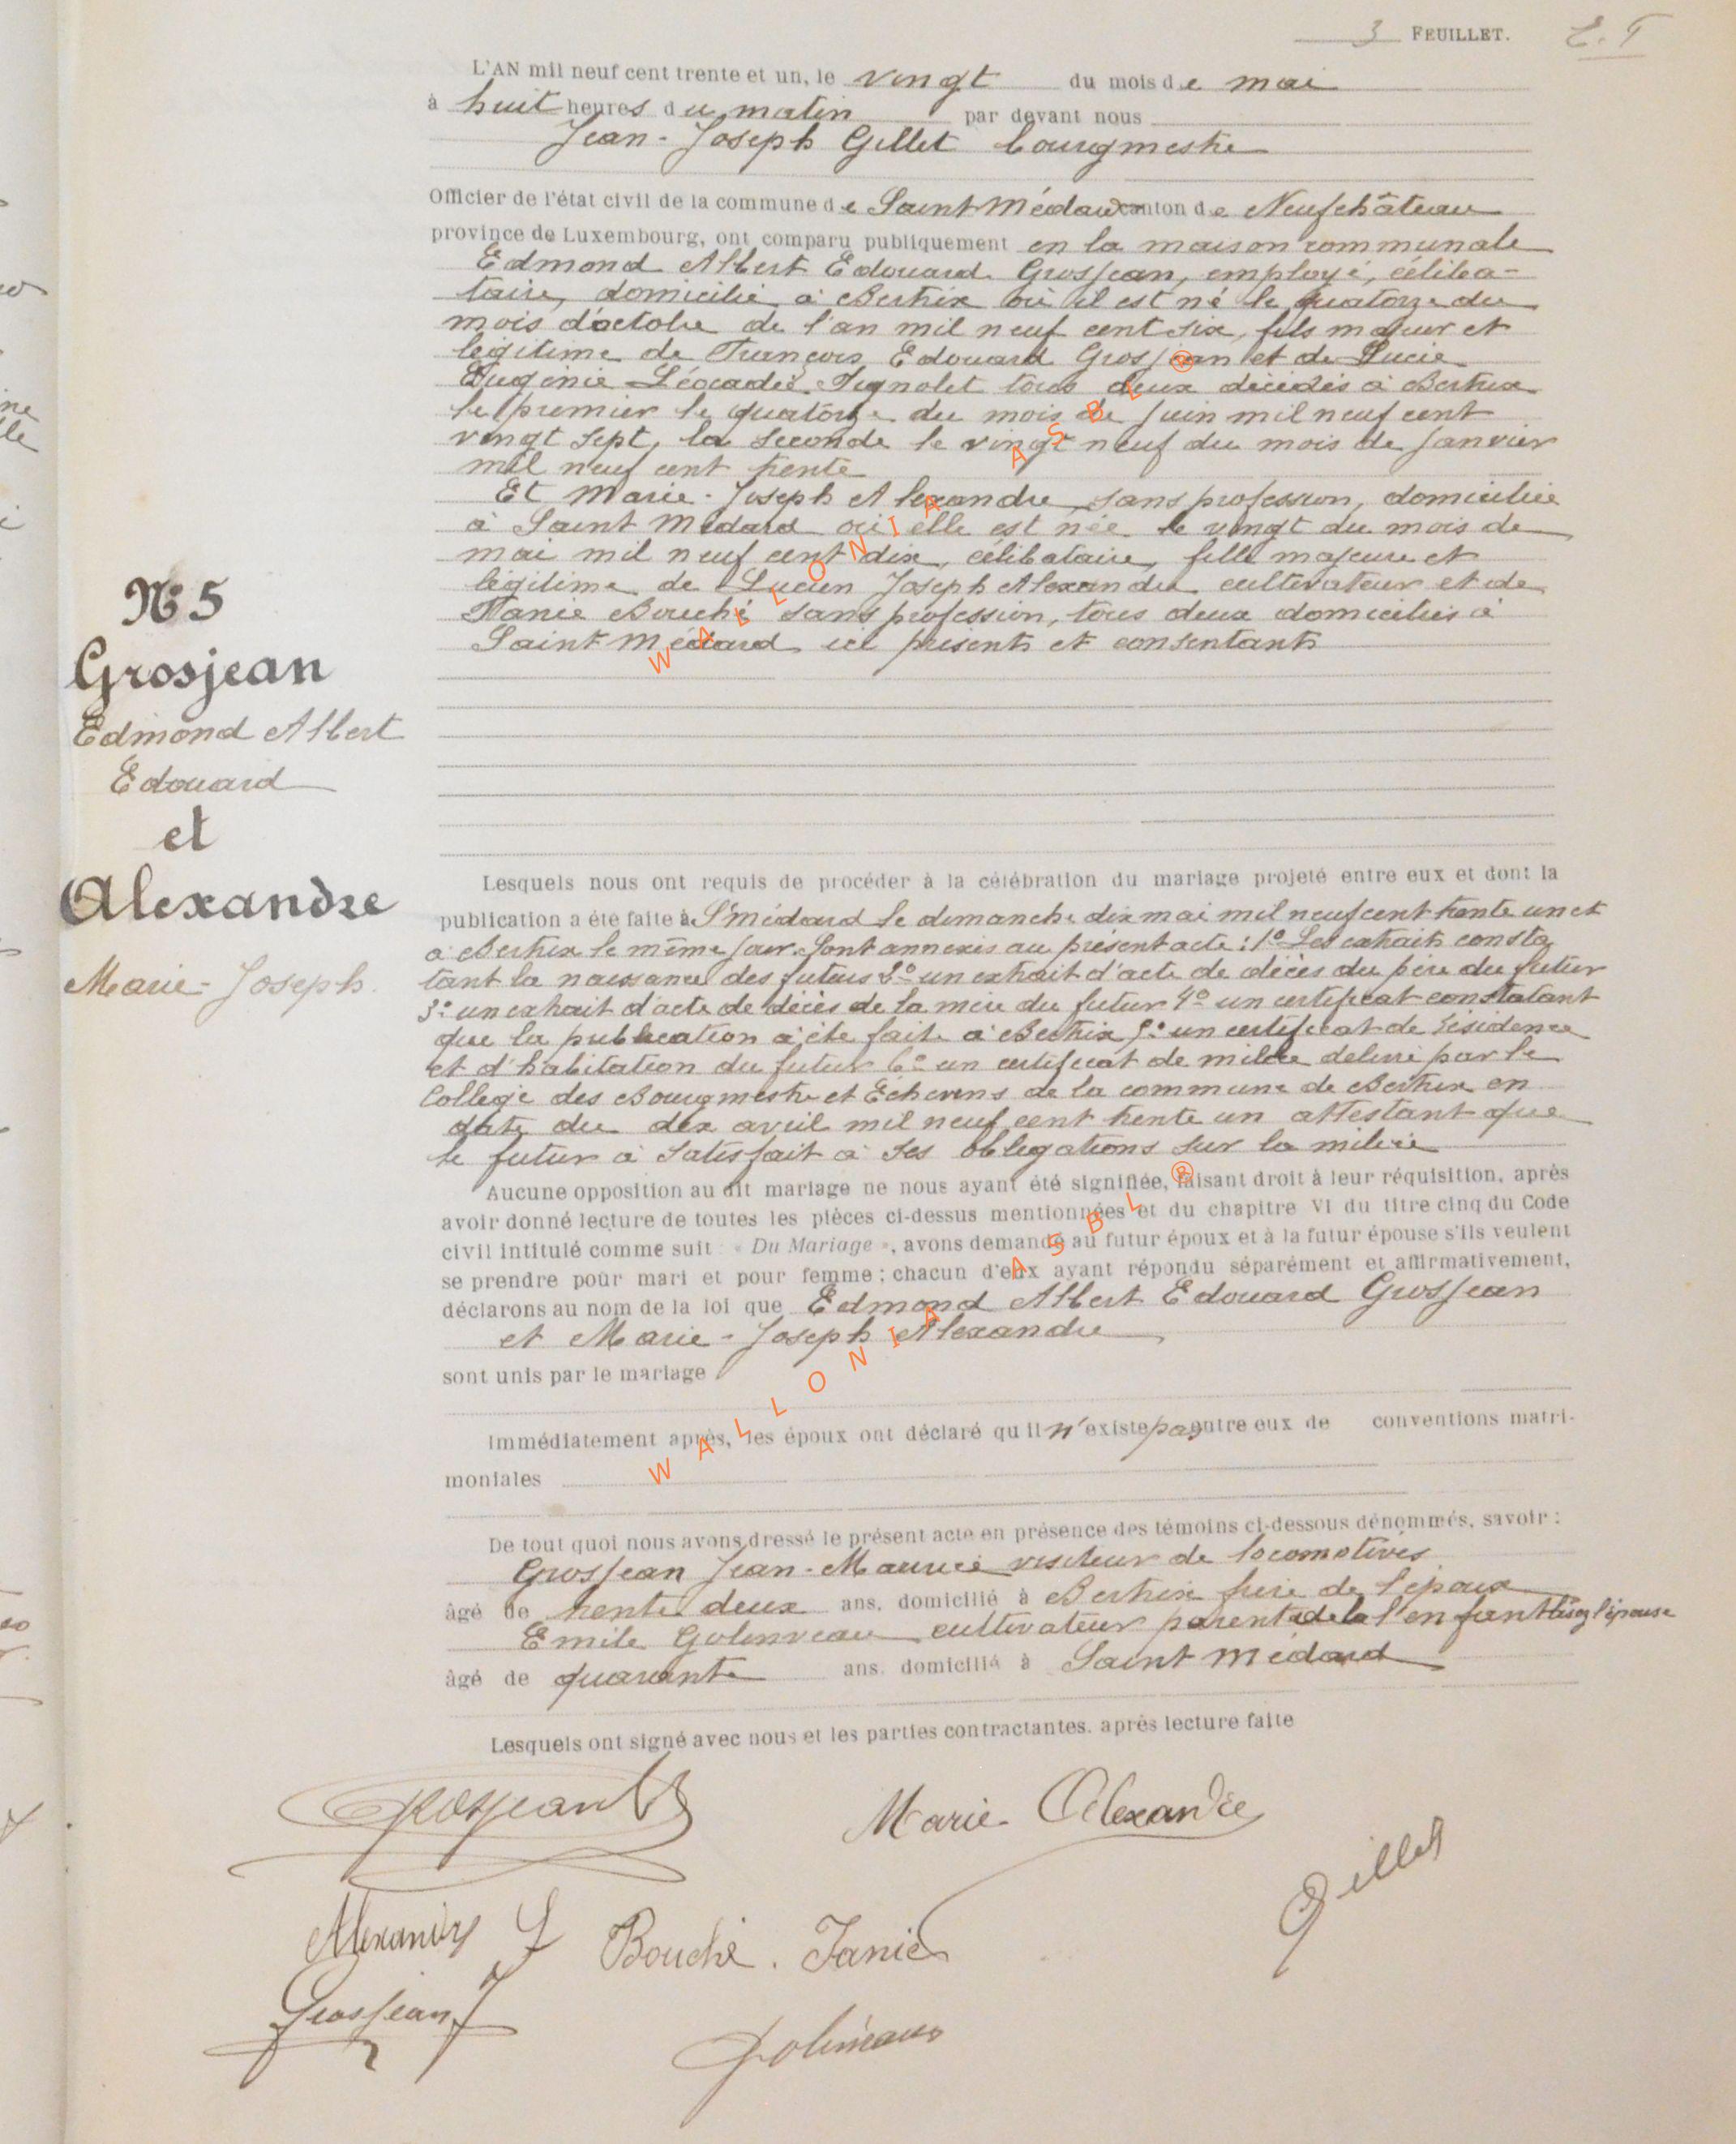 3 FEUILLET. E. T
L'AN mil neuf cent trente et un, le vingt du mois de mai
à huit heures du matin par devant nous
Jean-Joseph Gillet bourgmestre
Officier de l'état civil de la commune de Saint Médard canton de Neufchâteau
province de Luxembourg, ont comparu publiquement en la maison communale
Edmond Albert Edouard Grosjean, employé, céliba-
taire, domicilié à Bertrix où il est né le quatorze du
mois d'octobre de l'an mil neuf cent six, fils majeur et
légitime de François Edouard Grosjean et de Lucie
Eugénie Léocadie tous deux décédés à Bertrix
le premier le quatorze du mois de juin mil neuf cent
vingt sept, la seconde le vingt neuf du mois de janvier
mil neuf cent trente
Et Marie-Joseph Alexandre, sans profession, domiciliée
à Saint Médard où elle est née le vingt du mois de
mai mil neuf cent dix, célibataire, fille majeure et
légitime de Lucien Joseph Alexandre cultivateur et de
Bouché sans profession, tous deux domiciliés à
Saint Médard ici présents et consentants
N° 5
Grosjean
Edmond Albert
Edouard
et
Alexandre
Marie-Joseph
Lesquels nous ont requis de procéder à la célébration du mariage projeté entre eux et dont la
publication a été faite à St médard le dimanche dix mai mil neuf cent trente un et
à Bertrix le même jour. Sont annexés au présent acte : 1° Les extraits consta
tant la naissance des futurs 2° un extrait d'acte de décès du père du futur
3° un extrait d'acte de décès de la mère du futur 4° un certificat constatant
que la publication a été faite à Bertrix 5° un certificat de résidence
et d'habitation du futur 6° un certificat de milice délivré par le
Collège des Bourgmestre et Echevins de la commune de Bertrix en
date du dix avril mil neuf cent trente un attestant que
le futur à satisfait à ses obligations sur la milice
Aucune opposition au dit mariage ne nous ayant été signifiée, faisant droit à leur réquisition, après
avoir donné lecture de toutes les pièces ci-dessus mentionnées et du chapitre VI du titre cinq du Code
civil intitulé comme suit : « Du Mariage », avons demandé au futur époux et à la futur épouse s'ils veulent
se prendre pour mari et pour femme ; chacun d'eux ayant répondu séparément et affirmativement,
déclarons au nom de la loi que Edmond Albert Edouard Grosjean
et Marie-Joseph Alexandre
sont unis par le mariage
Immédiatement après, les époux ont déclaré qu'il n'existe pas entre eux de conventions matri-
moniales
De tout quoi nous avons dressé le présent acte en présence des témoins ci-dessous dénommés, savoir :
Grosjean Jean-Maurice visiteur de locomotives
âgé de trente deux ans, domicilié à Bertrix frère de l'époux
Emile Golinveau cultivateur parent de la l'enfant lisez l'épouse
âgé de quarante ans, domicilié à Saint Médard
Lesquels ont signé avec nous et les parties contractantes, après lecture faite
Grosjean
Marie Alexandre
Gillet
Alexandre L Bouché. Fanie
Grosjean J
Golinveaux
WALLONIA ASBL ®
WALLONIA ASBL ®